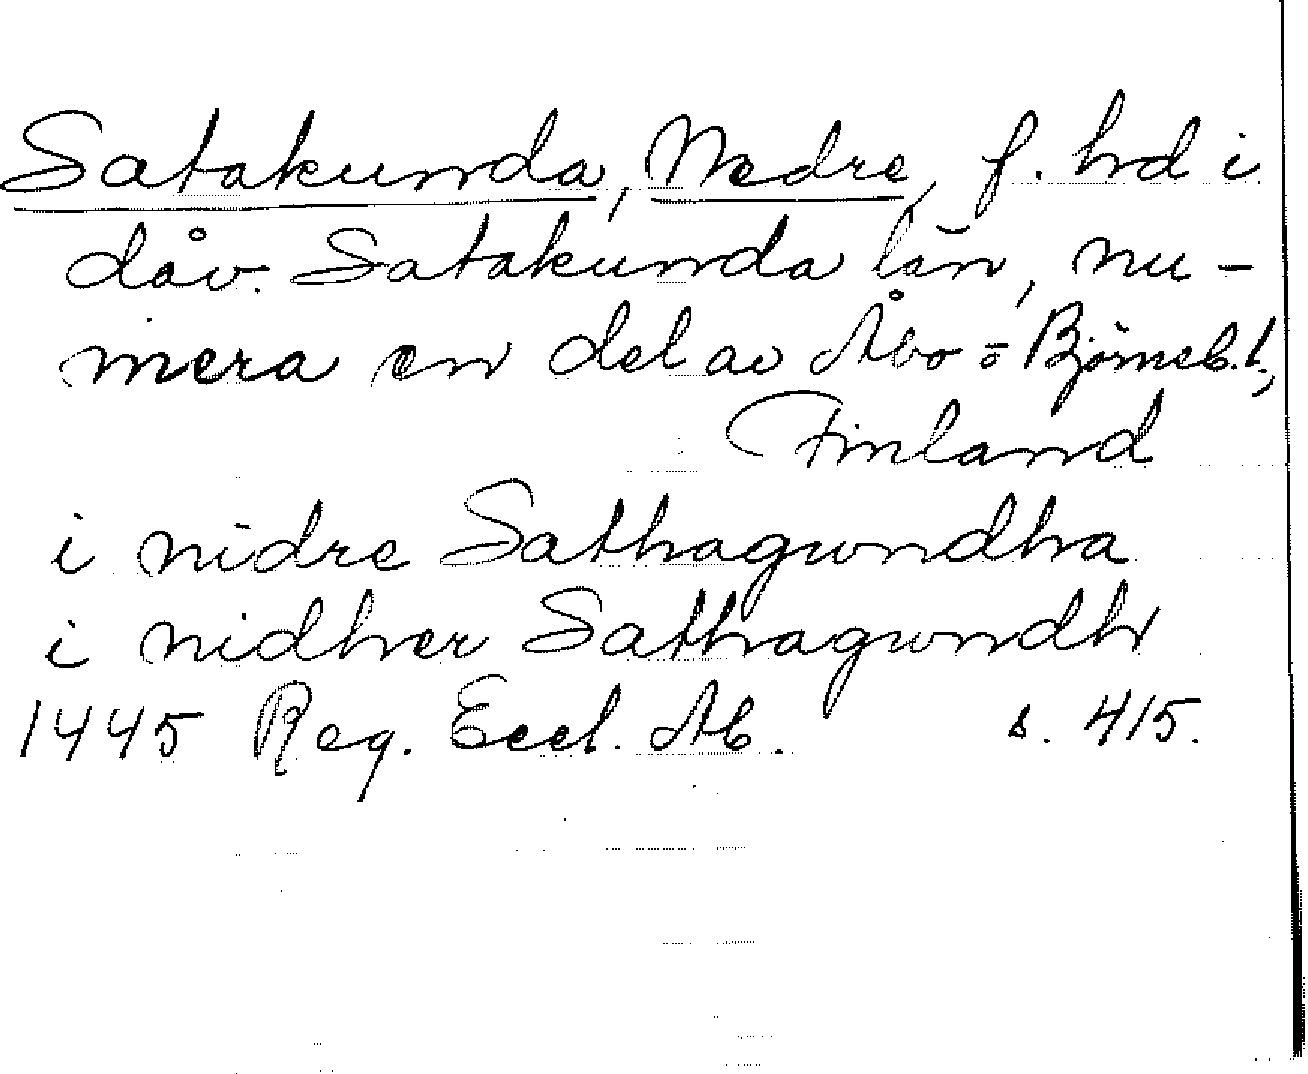 Satakunda, Nedre, f. hd i
dåv. Satakunda län, nu-
mera en del av Åbo o Björneb. l.,
Finland
i nidre Sathagwndha
i nidher Sathagwndh
1445 Reg. Eccl. Ab. s. 415.